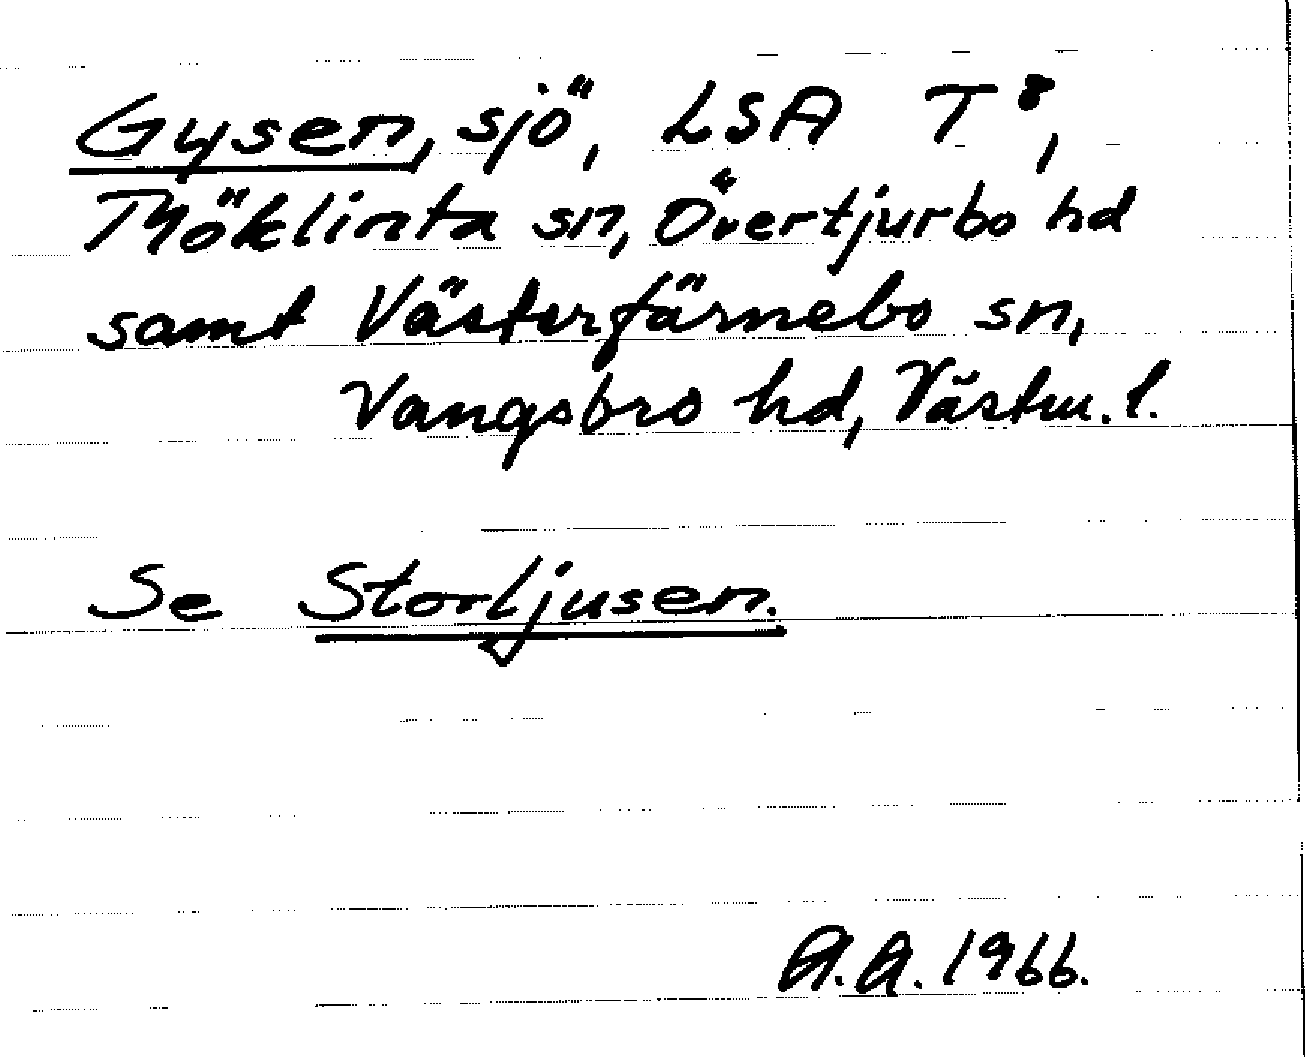 Gysen, sjö, LSA T⁸,
Möklinta sn, Övertjurbo hd
samt Västerfärnebo sn,
Vangsbro hd, Västm. l.
Se Storljusen.
A.A. 1966.